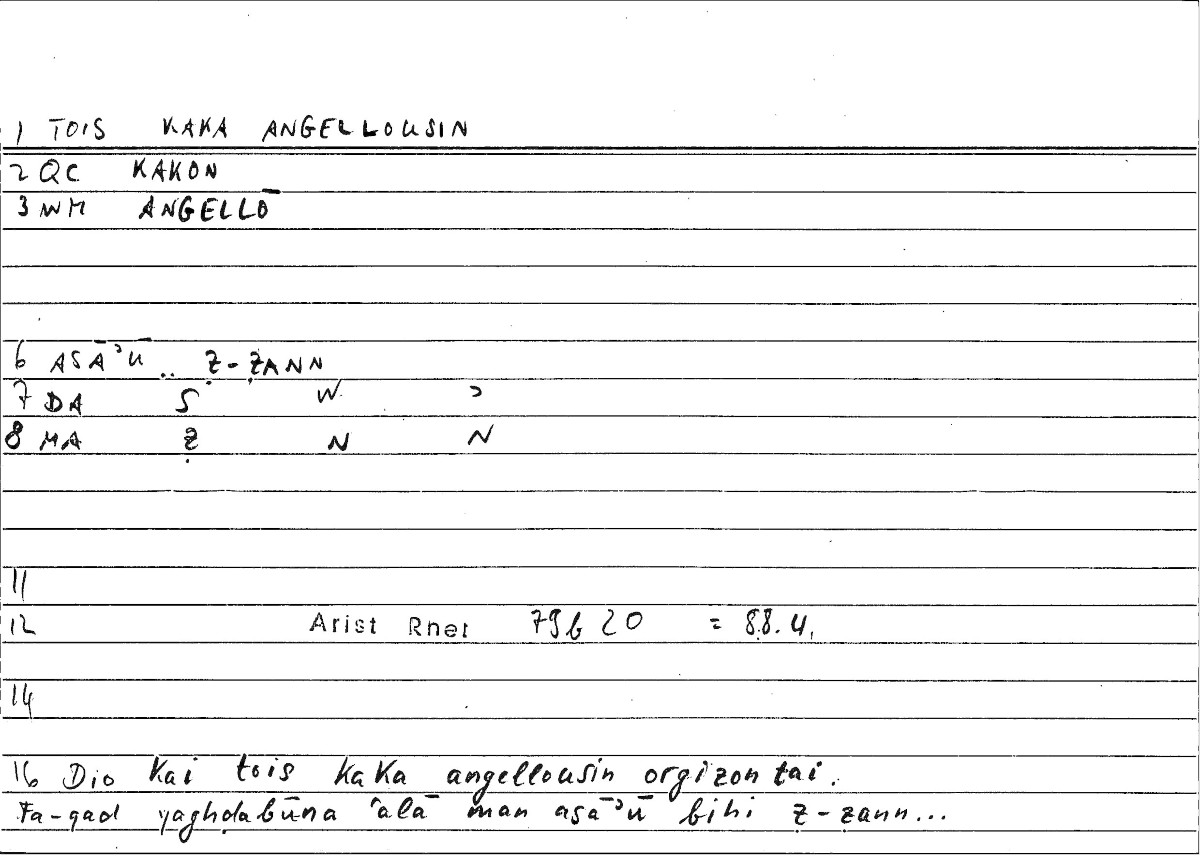 1 TOIS KAKA ANGELLOUSIN
2 QC KAKON
3 WM ANGELLŌ
6 ASĀʾŪ .. Ẓ-ẒANN
7 DA S W ʾ
8 MA Ẓ N N
11
12 Arist Rhet 79b 20 = 88.4.
14
16 Dio kai tois kaka angellousin orgizontai.
Fa-qad yaghḍabūna ʿalā man asāʾū bihi ẓ-ẓann...